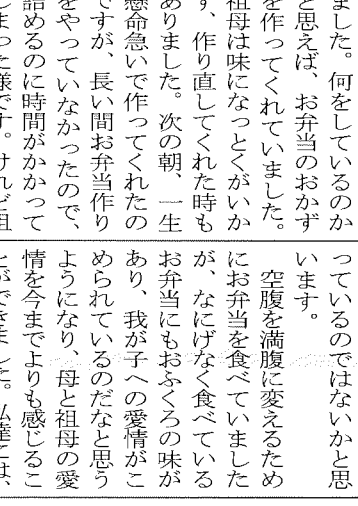 ました。何をしているのか
と思えば、お弁当のおかず
を作ってくれていました。
祖母は味になっとくがいか
ず、作り直してくれた時も
ありました。次の朝、一生
懸命急いで作ってくれたの
ですが、長い間お弁当作り
をやっていなかったので、
詰めるのに時間がかかって
しまった様です。けれど祖
っているのではないかと思
います。
空腹を満腹に変えるため
にお弁当を食べていました
が、なにげなく食べている
お弁当にもおふくろの味が
あり、我が子への愛情がこ
められているのだなと思う
ようになり、母と祖母の愛
情を今までよりも感じるこ
とができました。私達は、